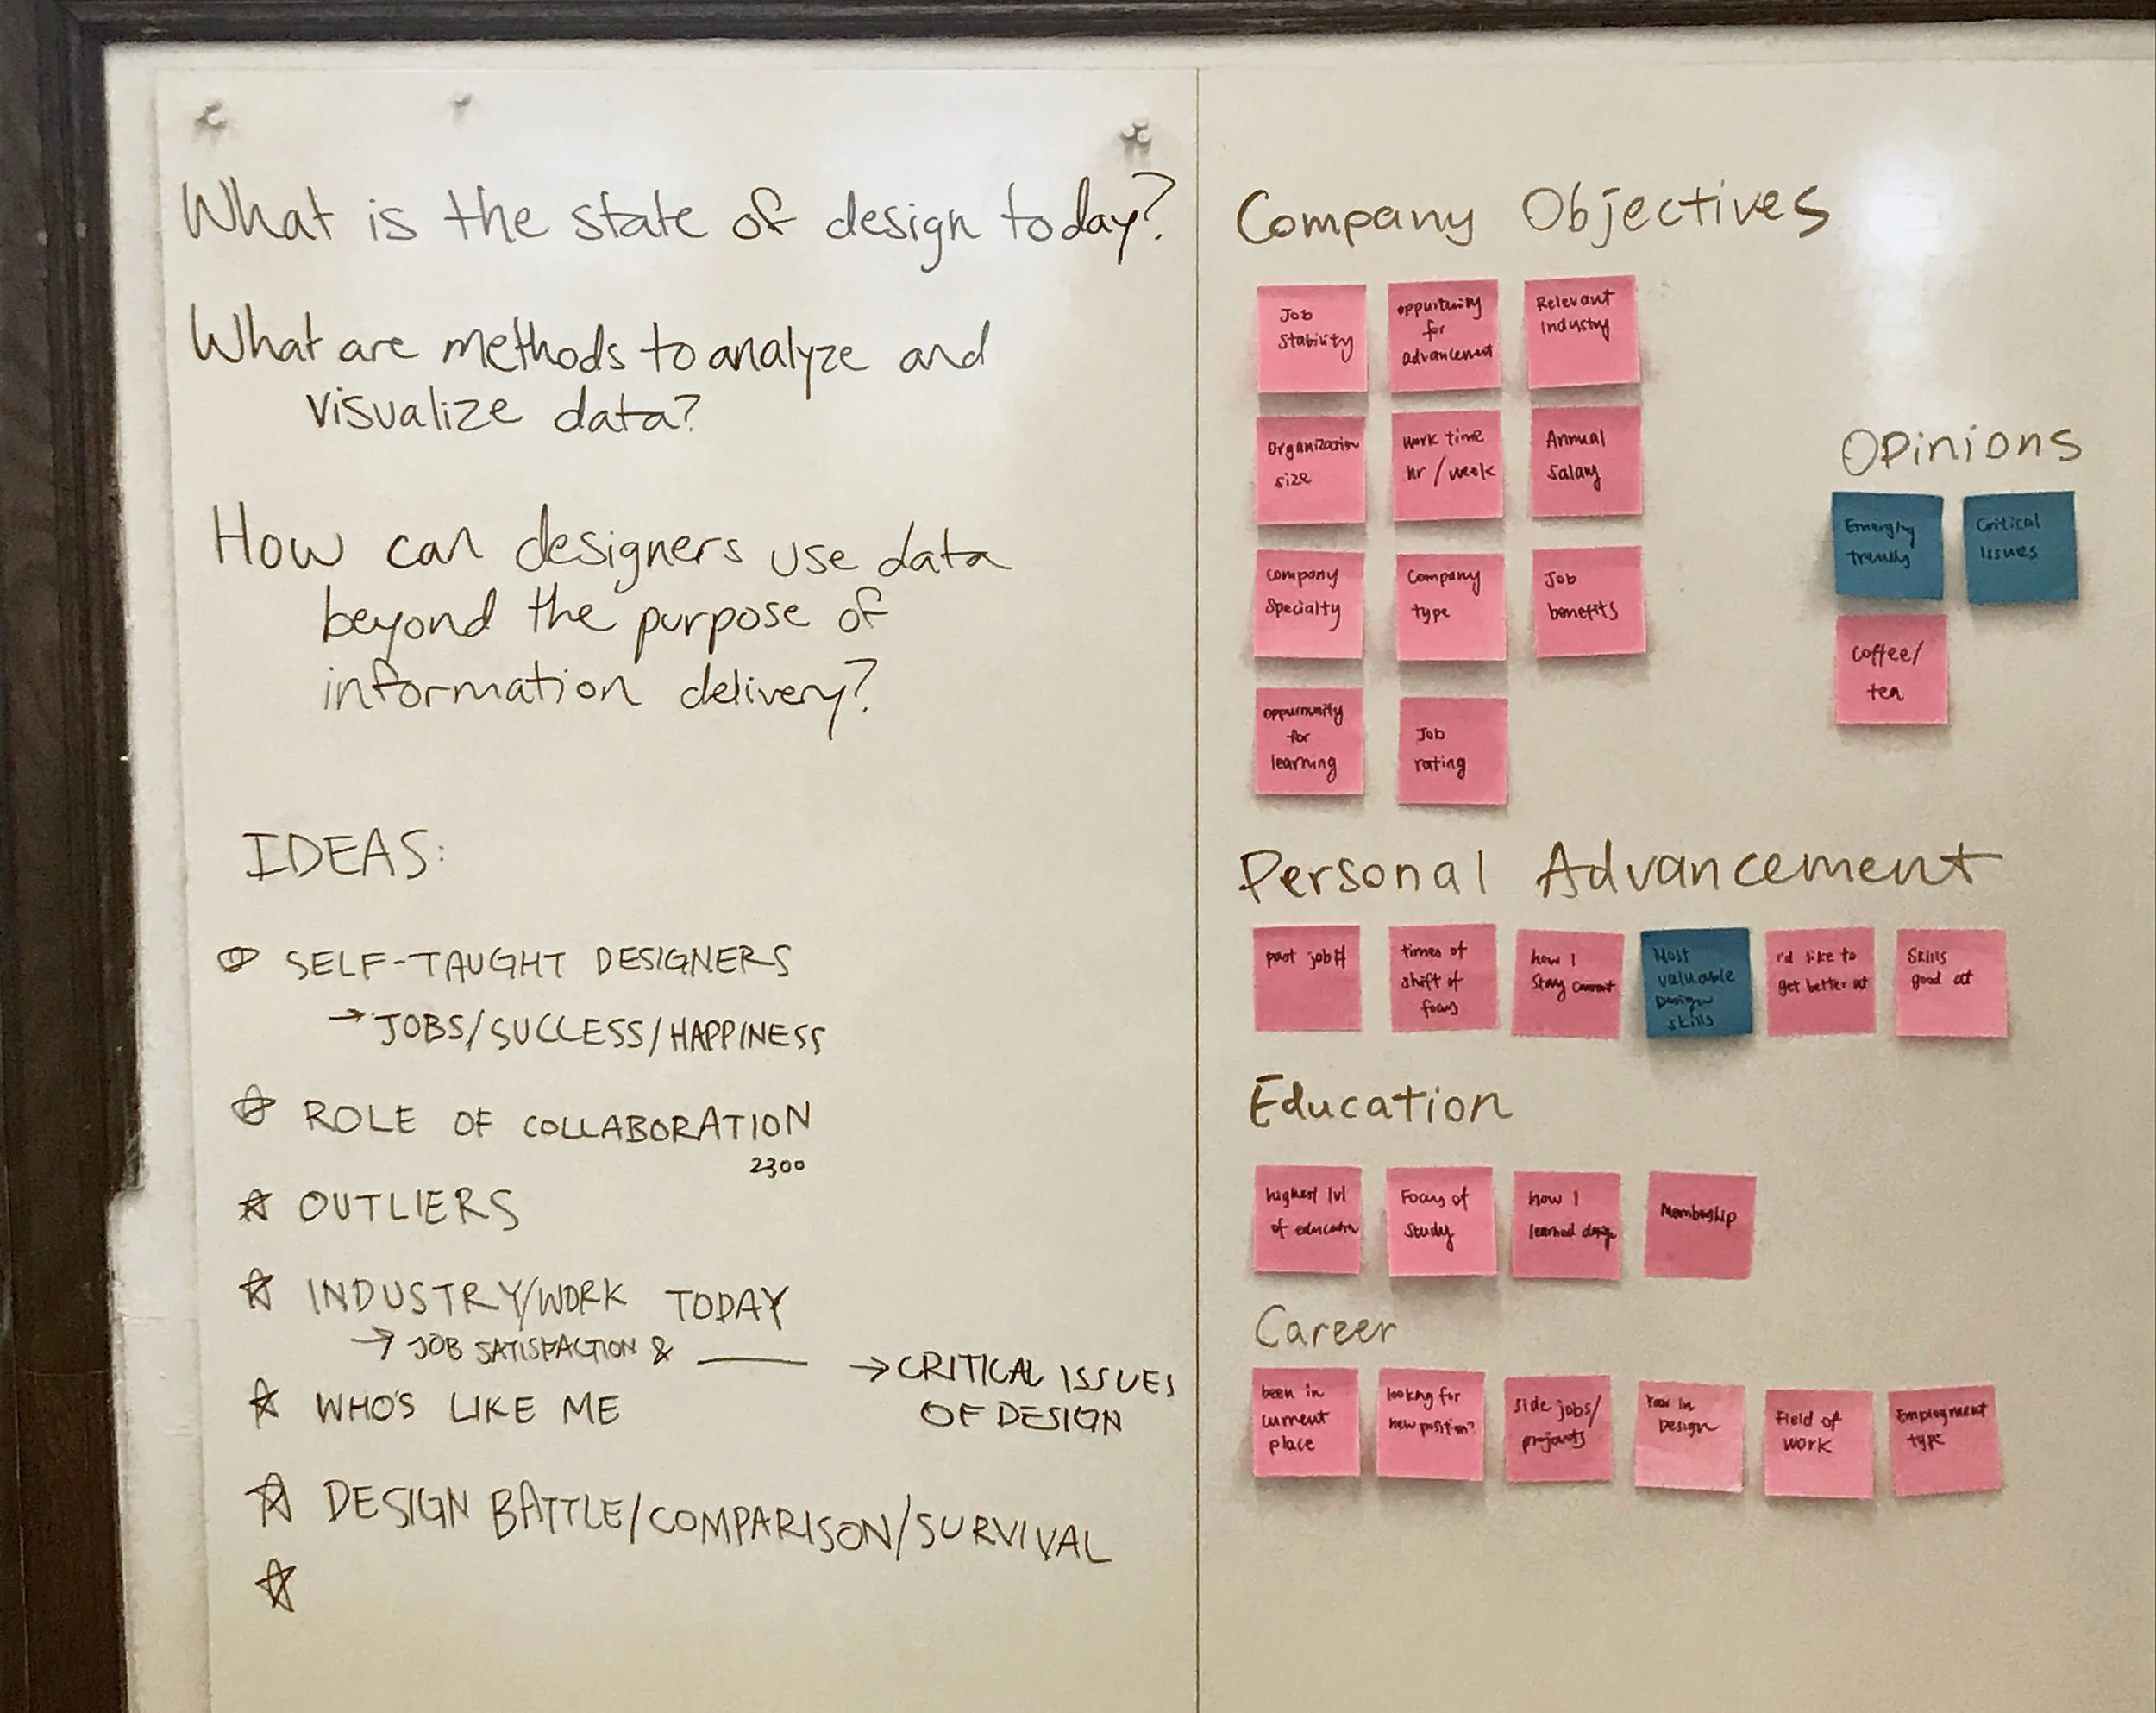 What is the state of design today?
What are methods to analyze and
visualize data?
How can designers use data
beyond the purpose of
information delivery?
IDEAS:
SELF-TAUGHT DESIGNERS
→ JOBS/SUCCESS/HAPPINESS
ROLE OF COLLABORATION
2300
OUTLIERS
INDUSTRY/WORK TODAY
→ JOB SATISFACTION & ____ → CRITICAL ISSUES
OF DESIGN
WHO'S LIKE ME
DESIGN BATTLE/COMPARISON/SURVIVAL
Company Objectives
Job
Stability
for
advancement
Relevant
Industry
Organization
size
Work time
hr/week
Annual
Salary
Company
Specialty
Company
type
Job
benefits
for
learning
Job
rating
Opinions
Emerging
trends
Critical
Issues
Coffee/
tea
Personal Advancement
past job#
times of
shift of
focus
how I
Stay current
Most
valuable
Design
skills
I'd like to
get better at
Skills
good at
Education
highest lvl
of education
Focus of
Study
how I
learned design
Membership
Career
been in
current
place
looking for
new position?
side jobs/
projects
Year in
Design
Field of
work
Employment
type